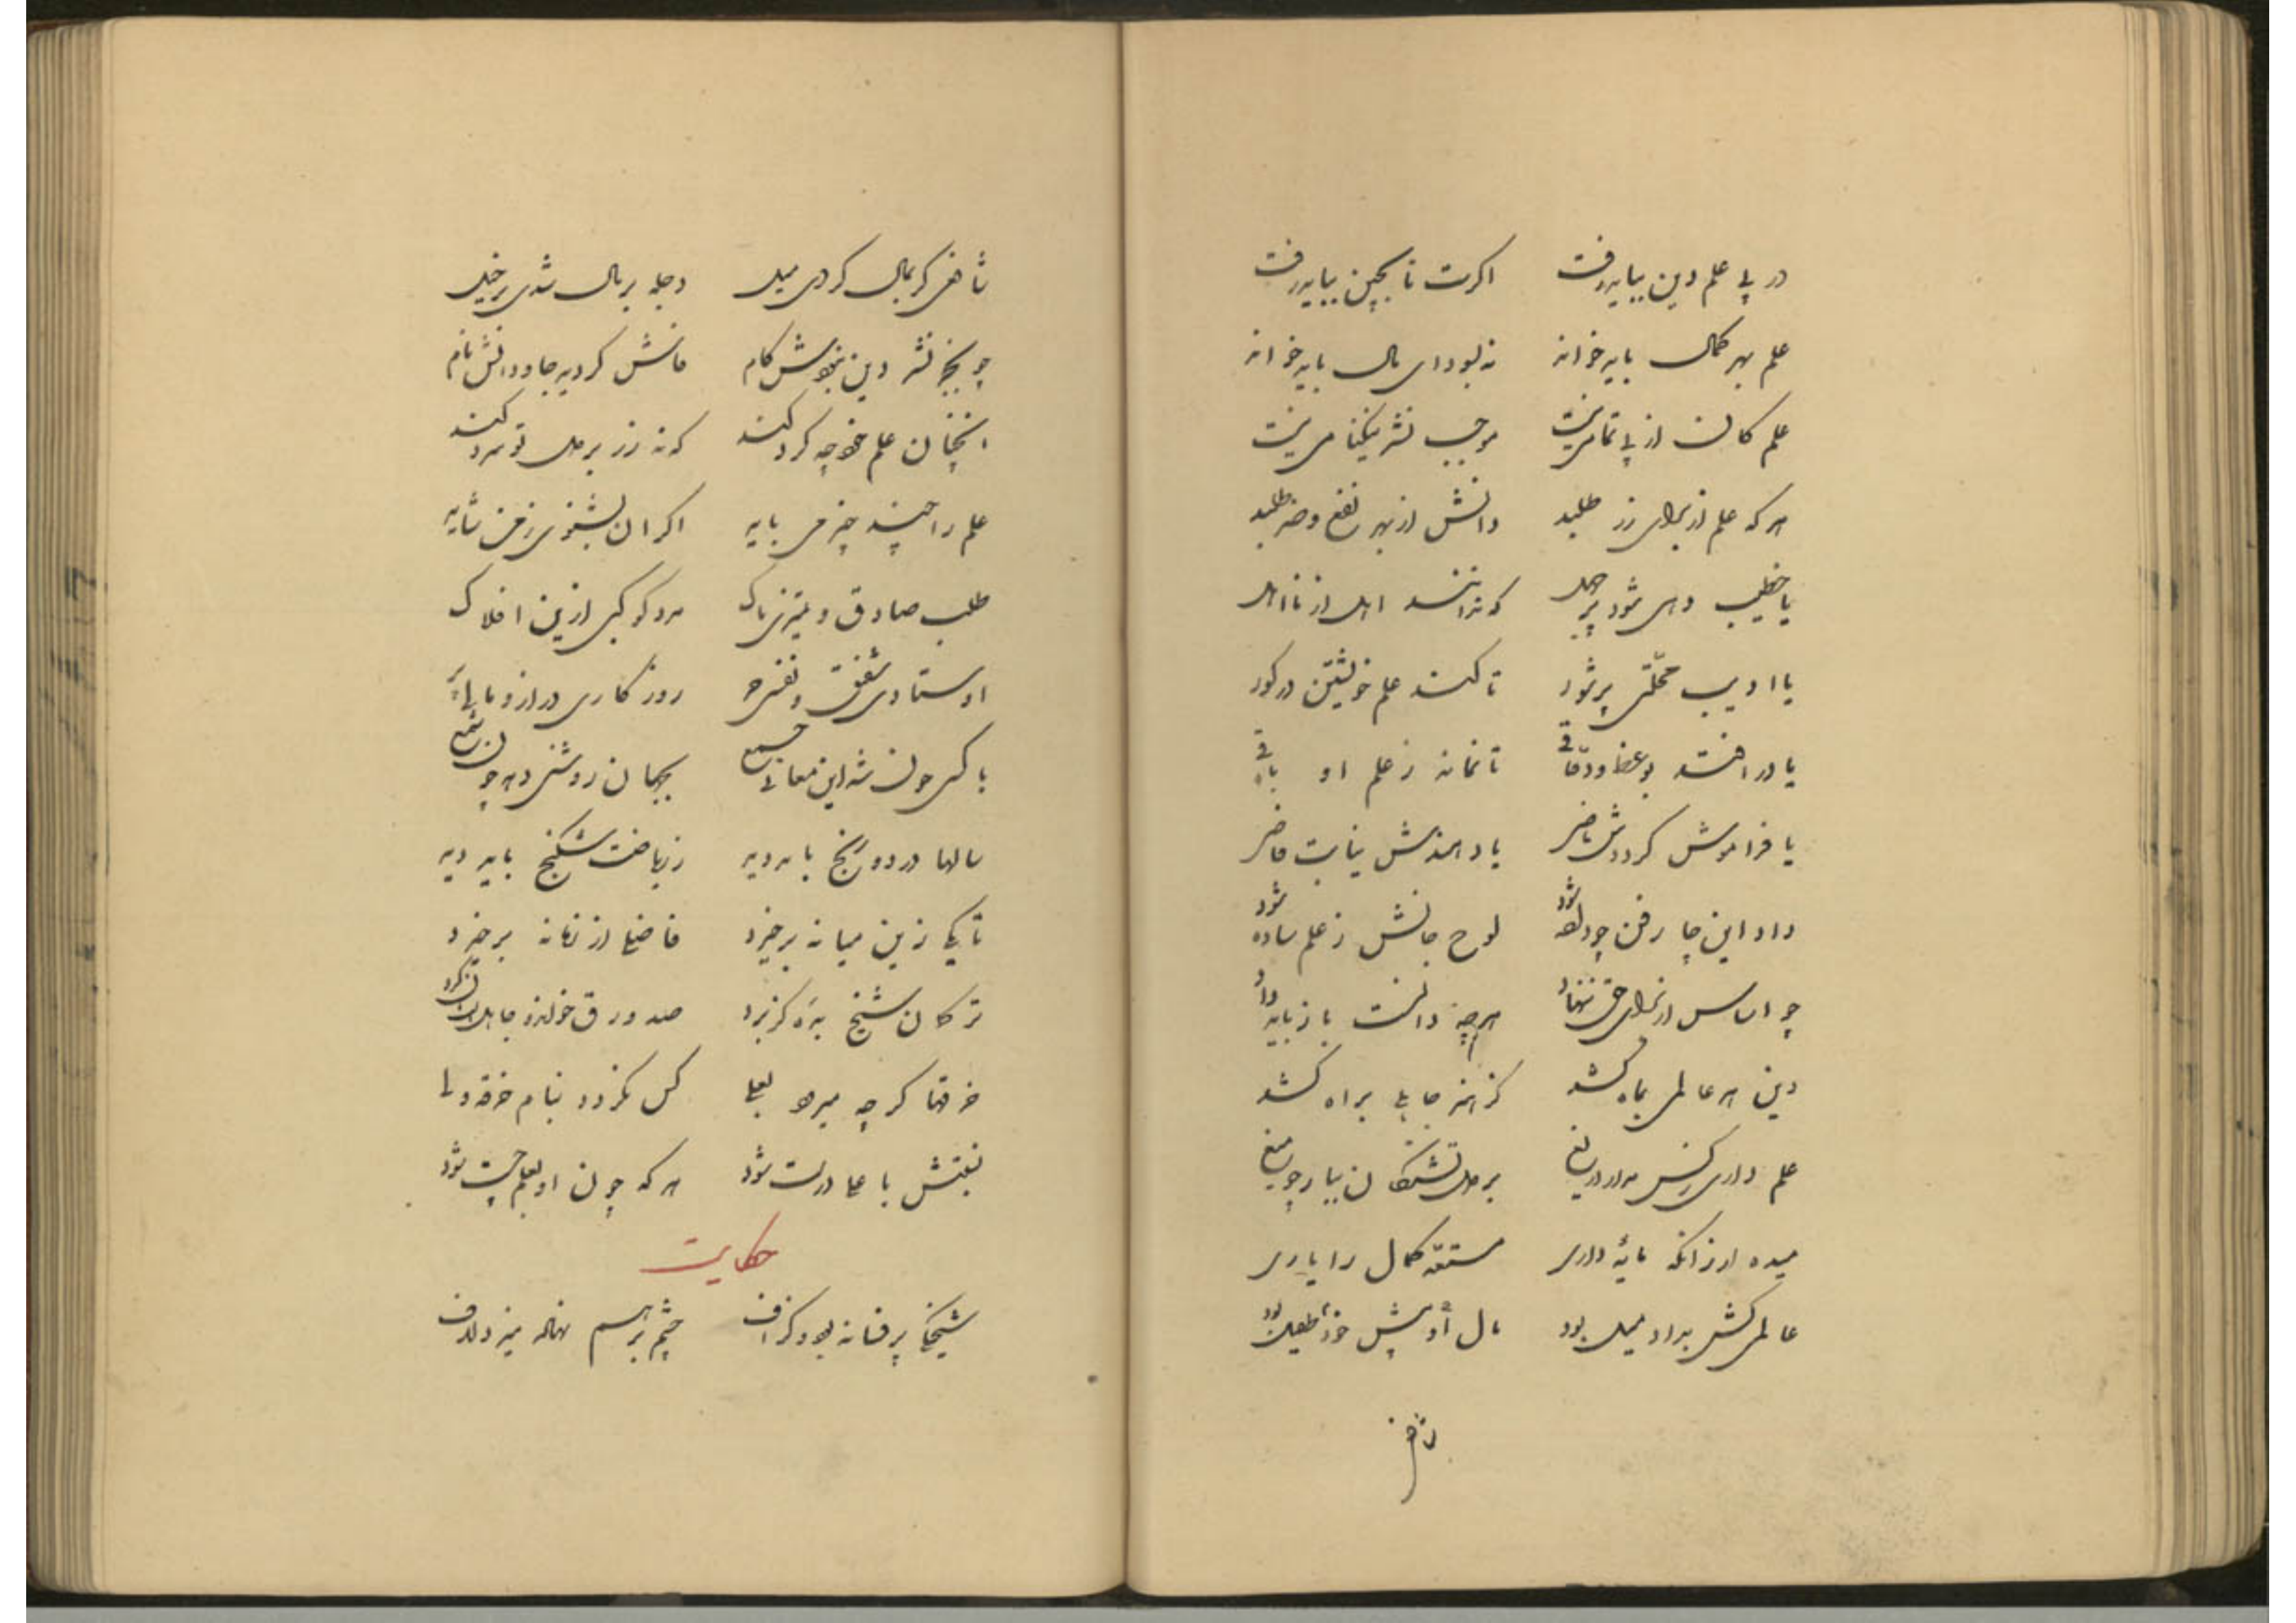 در پی علم دین بباید رفت اکرت تا بچین بباید رفت
علم بهر کمال باید خواند نه بسودای مال باید خواند
علم کان از پی تمامی نیست موجب نشر نیکنامی نیست
هر که علم از برای زر طلبد دانش از بهر نفع و ضر طلبد
یا خطیب دهی شود پر جهل که ندانند اهل از نااهل
یا ادیب محلتی پر شور تا کند علم خویشتن در کور
یا در افتد بوعظ و تا نماند ز علم او باقی
یا فراموش کرددش ماضی یا دهندش نیابت قاضی
داد این چار فن چو داده شود لوح جانش ز علم ساده شود
چو اساس از برای حق ننهاد هرچه دانست باز باید داد
دین هر عالمی بماه کشد کز هنر جاهلی براه کشد
علم داری ز کس مدار دریغ بر دل تشنکان ببار چو میغ
میده ار زانکه مایهٔ داری مستعد کمال را یاری
عالمی کش بداد میل بود مال خود طفیل بود
شافعی کر بمال کردی میل دجله پر مال شدی خیل
چو بجز نشر دین نبودش کام جاودانش نام
انچنان علم خواجه کرد کند که نه زر بر دل تو سرد کند
علم را چند چیز می باید اکر ان بشنوی ز من شاید
طلب صادق و ضمیری پاک مدد کوکبی ازین افلاک
اوستادی شفیق و نفس روزکاری دراز و مال
با کسی چون شد این معانی جمع بجهان روشنی دهد چون شمع
سالها درد و رنج باید دید ز ریاضت شکنج باید دید
تا یکی زین میانه برخیزد فاضلی از زمانه برخیزد
ترکان شیخ کرد صد ورق خواند و جاهل
خرقها کرچه میرود بعلی کس نکردد بنام خرقه ولی
نسبتش با علی درست شود هر که چون او بعلم چست شود
حکایت
شیخکی پر فسانه بود و کزاف چشم بر هم نهاد میزد لاف